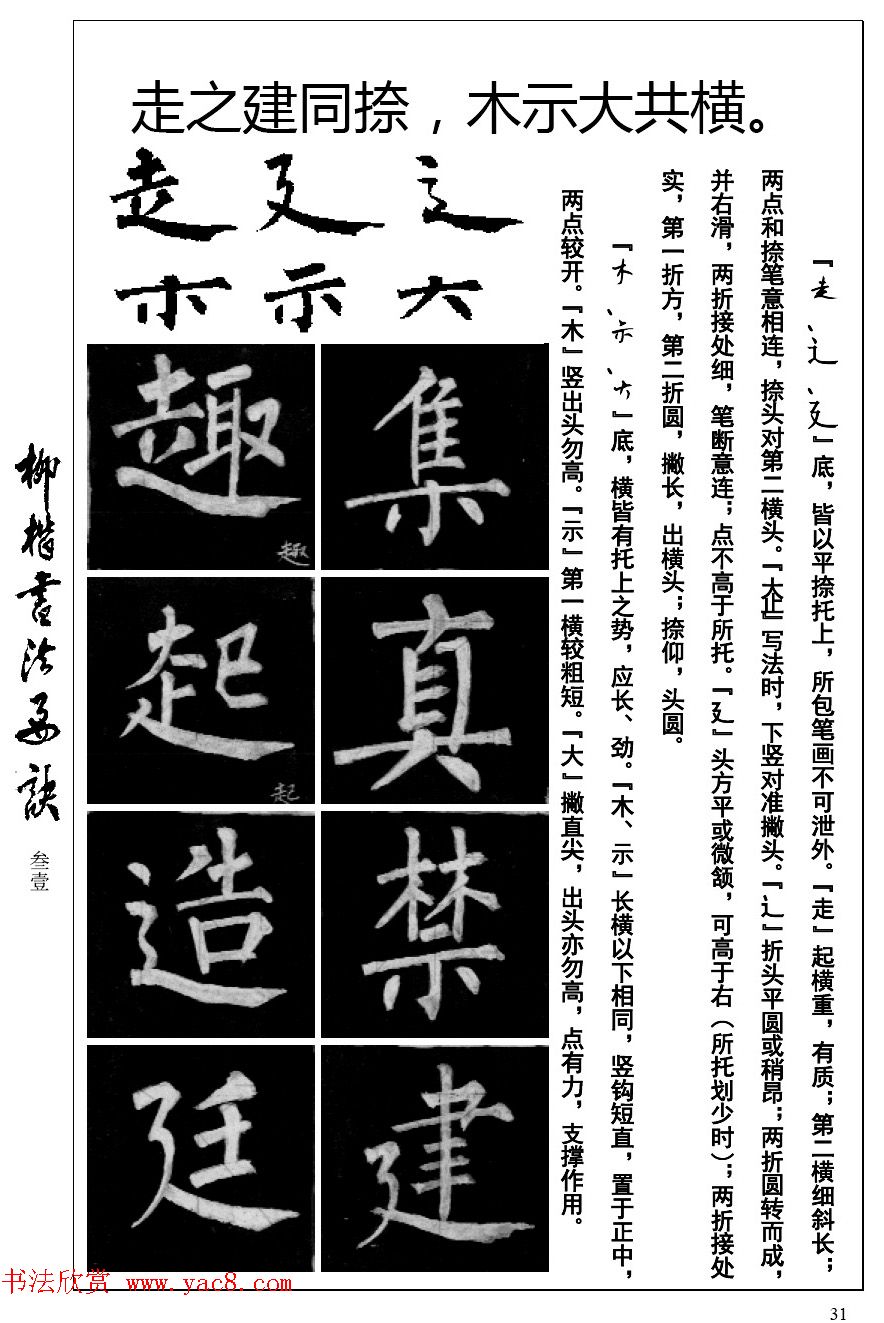 走之建同捺，木示大共横。
走 廴 辶
木 示 大
『走、辶、廴』底，皆以平捺托上，所包笔画不可泄外。『走』起横重，有质；第二横细斜长；
两点和捺笔意相连，捺头对第二横头。『龰』写法时，下竖对准撇头。『辶』折头平圆或稍昂；两折圆转而成，
并右滑，两折接处细，笔断意连；点不高于所托。『廴』头方平或微颔，可高于右（所托划少时）；两折接处
实，第一折方，第二折圆，撇长，出横头；捺仰，头圆。
『木、示、大』底，横皆有托上之势，应长、劲。『木、示』长横以下相同，竖钩短直，置于正中，
两点较开。『木』竖出头勿高。『示』第一横较粗短。『大』撇直尖，出头亦勿高，点有力，支撑作用。
趣 集
趣
起 真
起
造 禁
廷 建
柳楷书法要诀
叁壹
书法欣赏 www.yac8.com
31